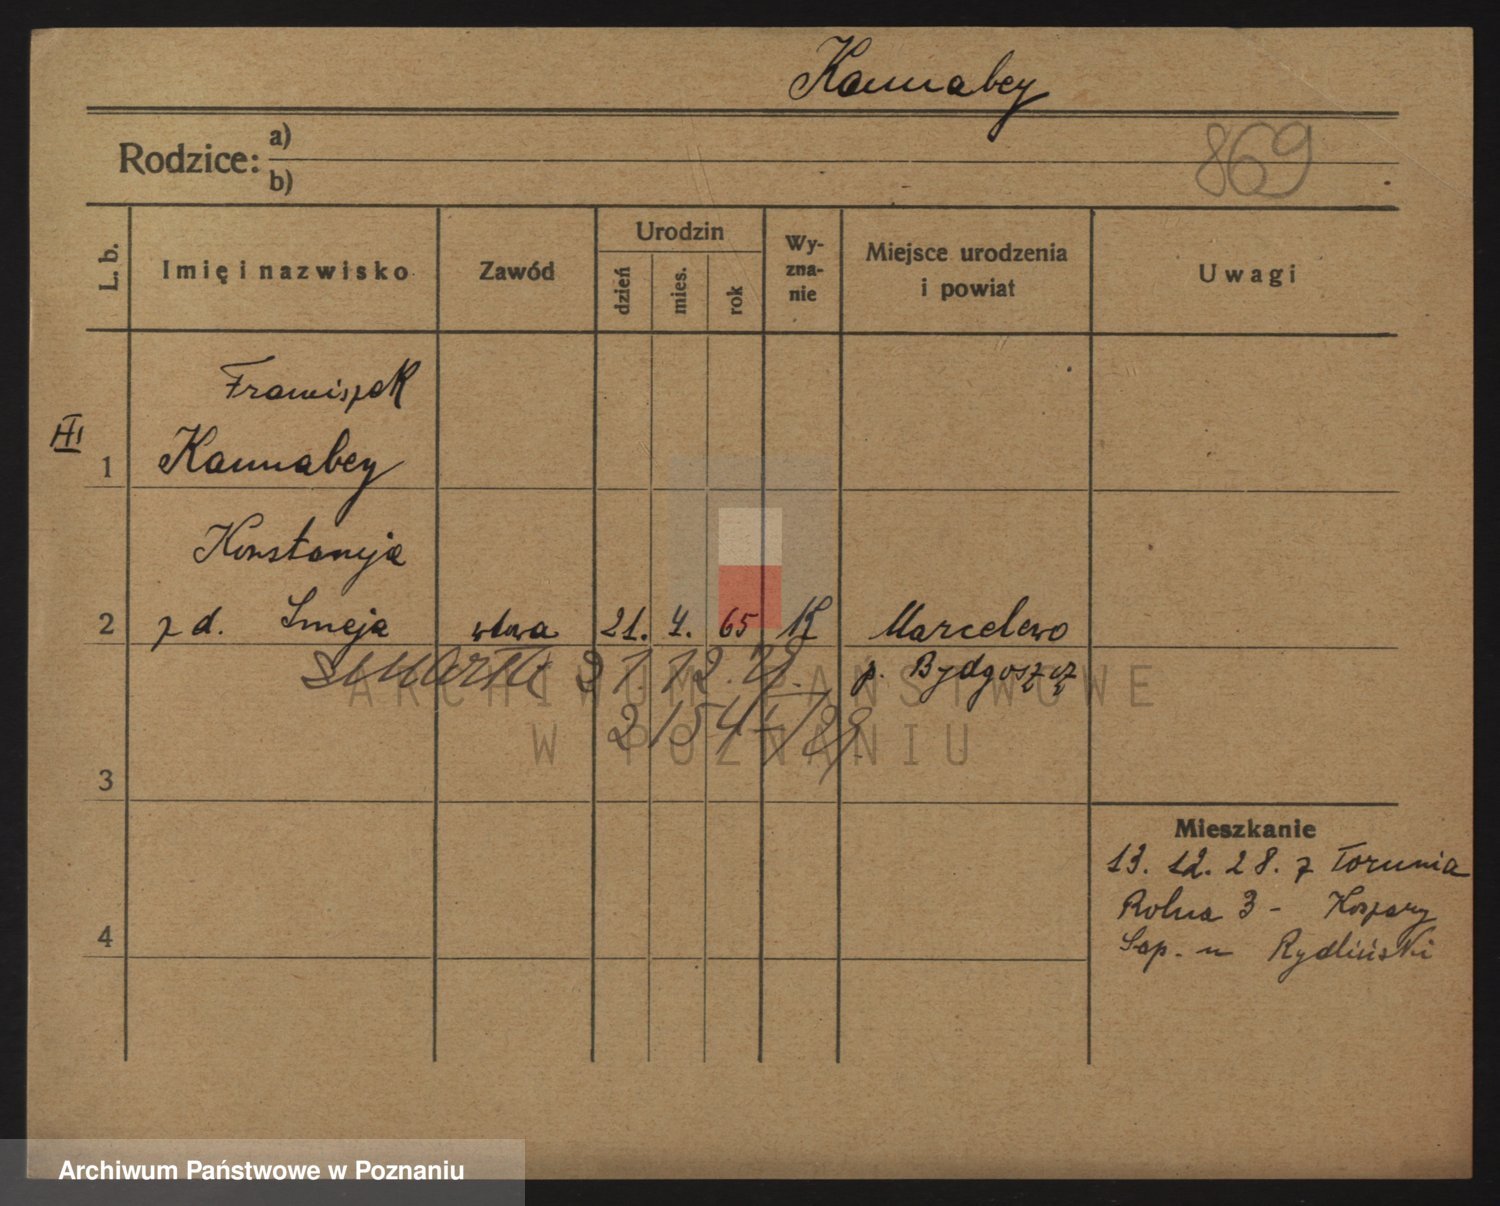 Kannabey
Rodzice: a)
b)
869
L. b. Imię i nazwisko Zawód Urodzin dzień mies. rok Wy-zna-nie Miejsce urodzenia i powiat Uwagi
III
Franciszek
1 Kannabey
Konstancja
2 z d. Smeja wdowa 21. 4. 65 K Marcelewo
zmarła 31.12.28. p. Bydgoszcz
2154/29.
3
Mieszkanie
13. 12. 28. z Torunia
Rolna 3 -
4
Rydliński
ARCHIWUM PAŃSTWOWE
W POZNANIU
Archiwum Państwowe w Poznaniu